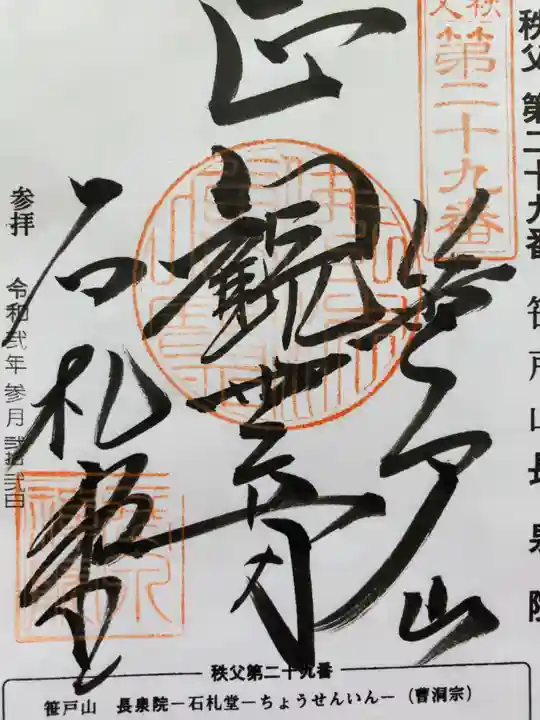 秩父
第二十九番
秩父第二十九番 笹戸山長泉院
笹戸山
正観世音
石札堂
参拝 令和弐年参月弐拾弐日
秩父第二十九番
笹戸山 長泉院－石札堂－ちょうせんいん－（曹洞宗）